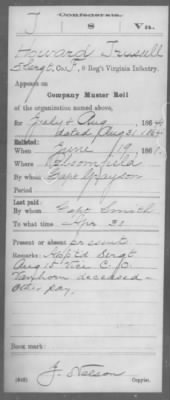 Confederate.
T 8 Va.
Howard Trussell
Sergt, Co. F, 8 Reg't Virginia Infantry.
Appears on
Company Muster Roll
of the organization named above,
for July & Aug, 1864
dated Aug 31 1864
Enlisted:
When June 19, 186
Where Bloomfield
By whom Capt Grayson
Period
Last paid:
By whom Capt Smith
To what time Apr 30
Present or absent present
Remarks: App'td Sergt
Aug 15 Vice C. D.
deceased
other pay.
Book mark:
J. Nelson
(642) Copyist.